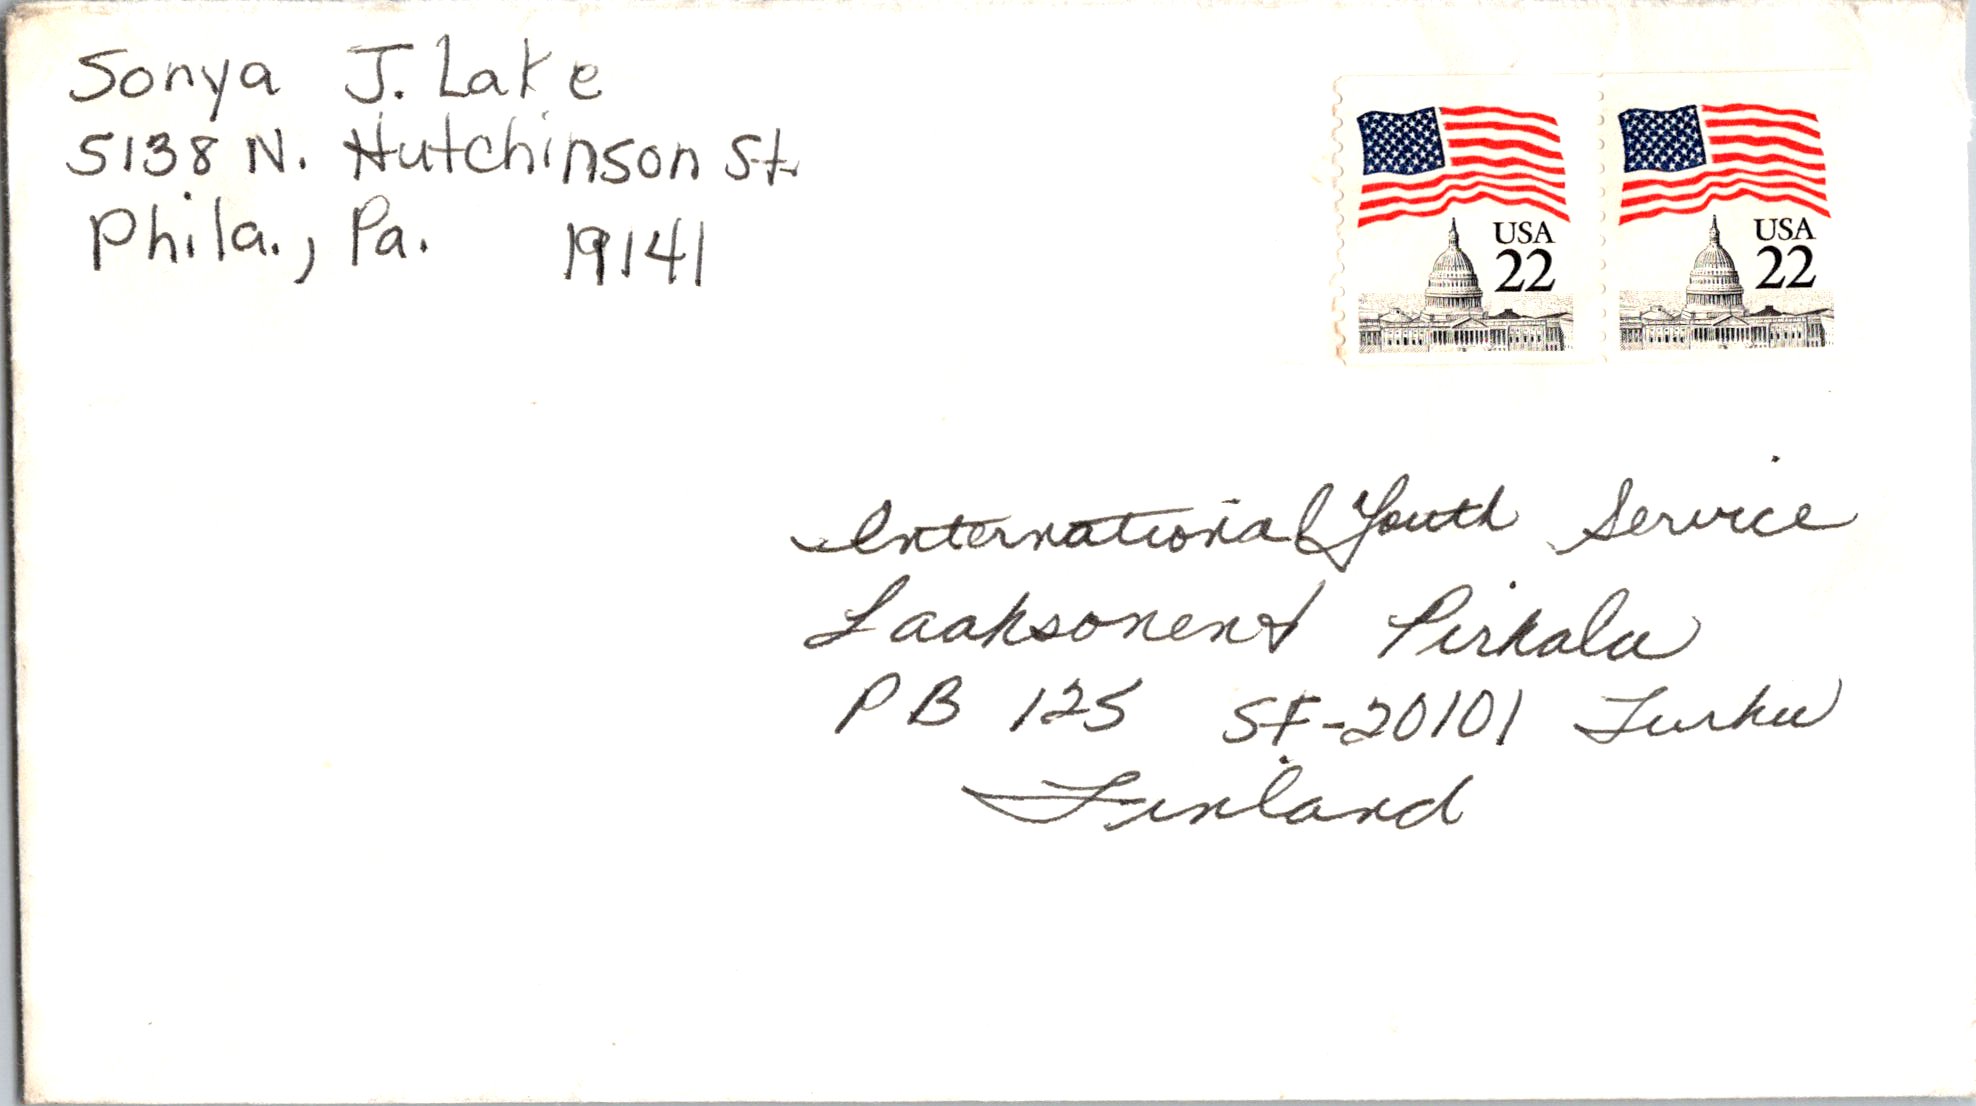 Sonya J. Lake
5138 N. Hutchinson St.
Phila., Pa. 19141
USA
22
USA
22
International Youth Service
Laaksonen Pirkala
PB 125 SF-20101 Turku
Finland